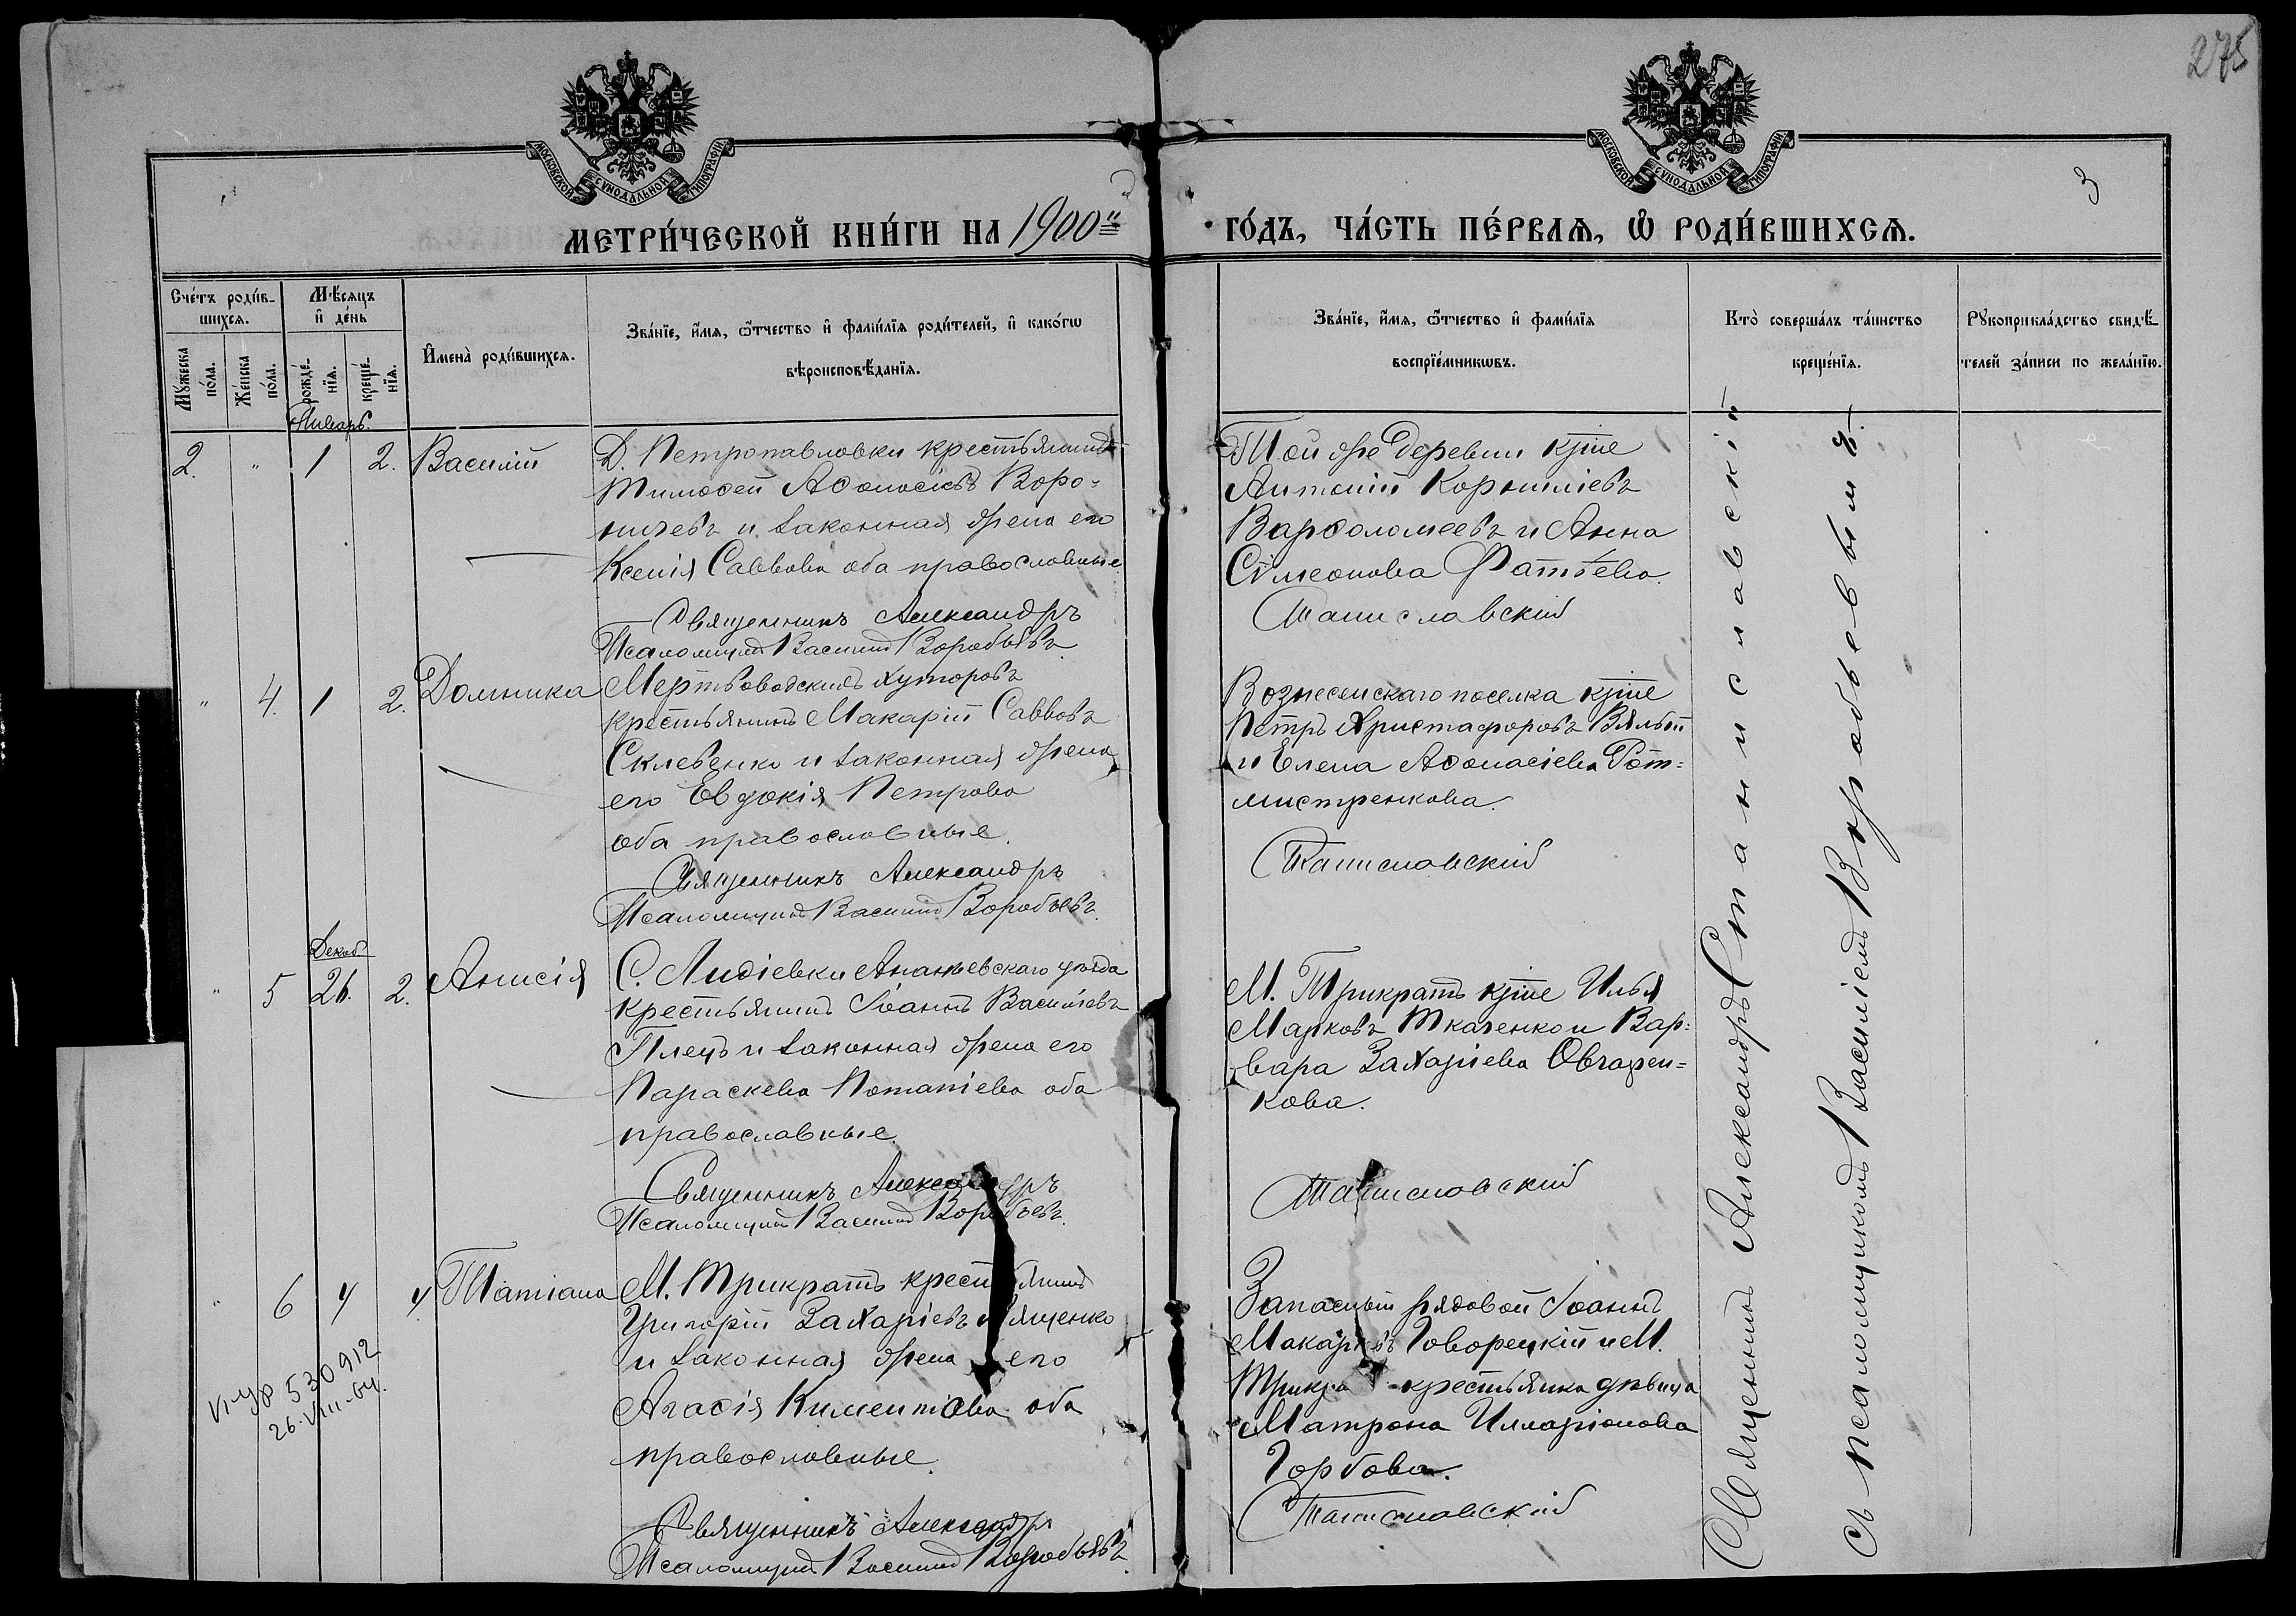 275
3
МОСКОВСКОЙ СѴНОДАЛЬНОЙ ТИПОГРАФІИ
МОСКОВСКОЙ СѴНОДАЛЬНОЙ ТИПОГРАФІИ
МЕТРИ́ЧЕСКОЙ КНИ́ГИ НА 1900й
ГО́ДЪ, ЧА́СТЬ ПЕ́РВАѦ, Ѡ҆ РОДИ́ВШИХСѦ.
Сче́тъ роди́в-
шихсѧ.
Мꙋ́жеска по́ла.
Же́нска по́ла.
Мѣ́сяцъ
и҆ де́нь
рожде́-
нїѧ.
креще́-
нїѧ.
И҆мена̀ роди́вшихсѧ.
Зва́нїе, и҆́мѧ, ѻ҆́тчество и҆ фами́лїѧ роди́телей, и҆ како́гѡ
вѣроисповѣ́данїѧ.
Зва́нїе, и҆́мѧ, ѻ҆́тчество и҆ фами́лїѧ
воспрїе́мникѡвъ.
Кто̀ соверша́лъ та́инство
креще́нїѧ.
Рꙋкоприкла́дство свидѣ́-
телей за́писи по жела́нїю.
Январь.
2. " 1 2. Василій
Д. Петропавловки крестьянинъ
Тимоѳей Аѳонасіевъ Воро-
ничевъ и законная жена его
Ксенія Саввова оба православные
Священникъ Александръ
Псаломщикъ Василій Воробьевъ
Той же деревни кр-не
Антоній Корниліевъ
Варѳоломеевъ и Анна
Сѵмеонова Фатѣева.
Станиславскій
" 4. 1 2. Домника
Мертвоводскихъ хуторовъ
крестьянинъ Макарій Саввовъ
Склевенко и законная жена
его Евдокія Петрова
оба православные.
Священникъ Александръ
Псаломщикъ Василій Воробьевъ.
Вознесенскаго поселка кр-не
Петръ Христафоровъ Вялый
и Елена Аѳонасіева Рот-
мистренкова.
Станиславскій
Декаб.
" 5 26. 2. Анисія
С. Лидіевки Ананьевскаго уѣзда
крестьянинъ Іоаннъ Василіевъ
Плецъ и законная жена его
Параскева Потапіева оба
православные.
Священникъ Александръ
Псаломщикъ Василій Воробьевъ.
М. Трикратъ кр-не Илья
Марковъ Ткаченко и Вар-
вара Захаріева Овчарен-
кова.
Станиславскій
" 6 4 4 Татіана
М. Трикратъ крестьянинъ
Григорій Захаріевъ
и законная жена его
Агаѳія Климентіева оба
православные.
Священникъ Александръ
Псаломщикъ Василій Воробьевъ
Запасный рядовой Іоаннъ
Макаріевъ Говорецкій и М.
Трикратъ крестьянка дѣвица
Матрона Илларіонова
Горбова.
Станиславскій
530912
26.VIII-64.
Священникъ Александръ Станиславскій
съ псаломщикомъ Василіемъ Воробьевымъ.